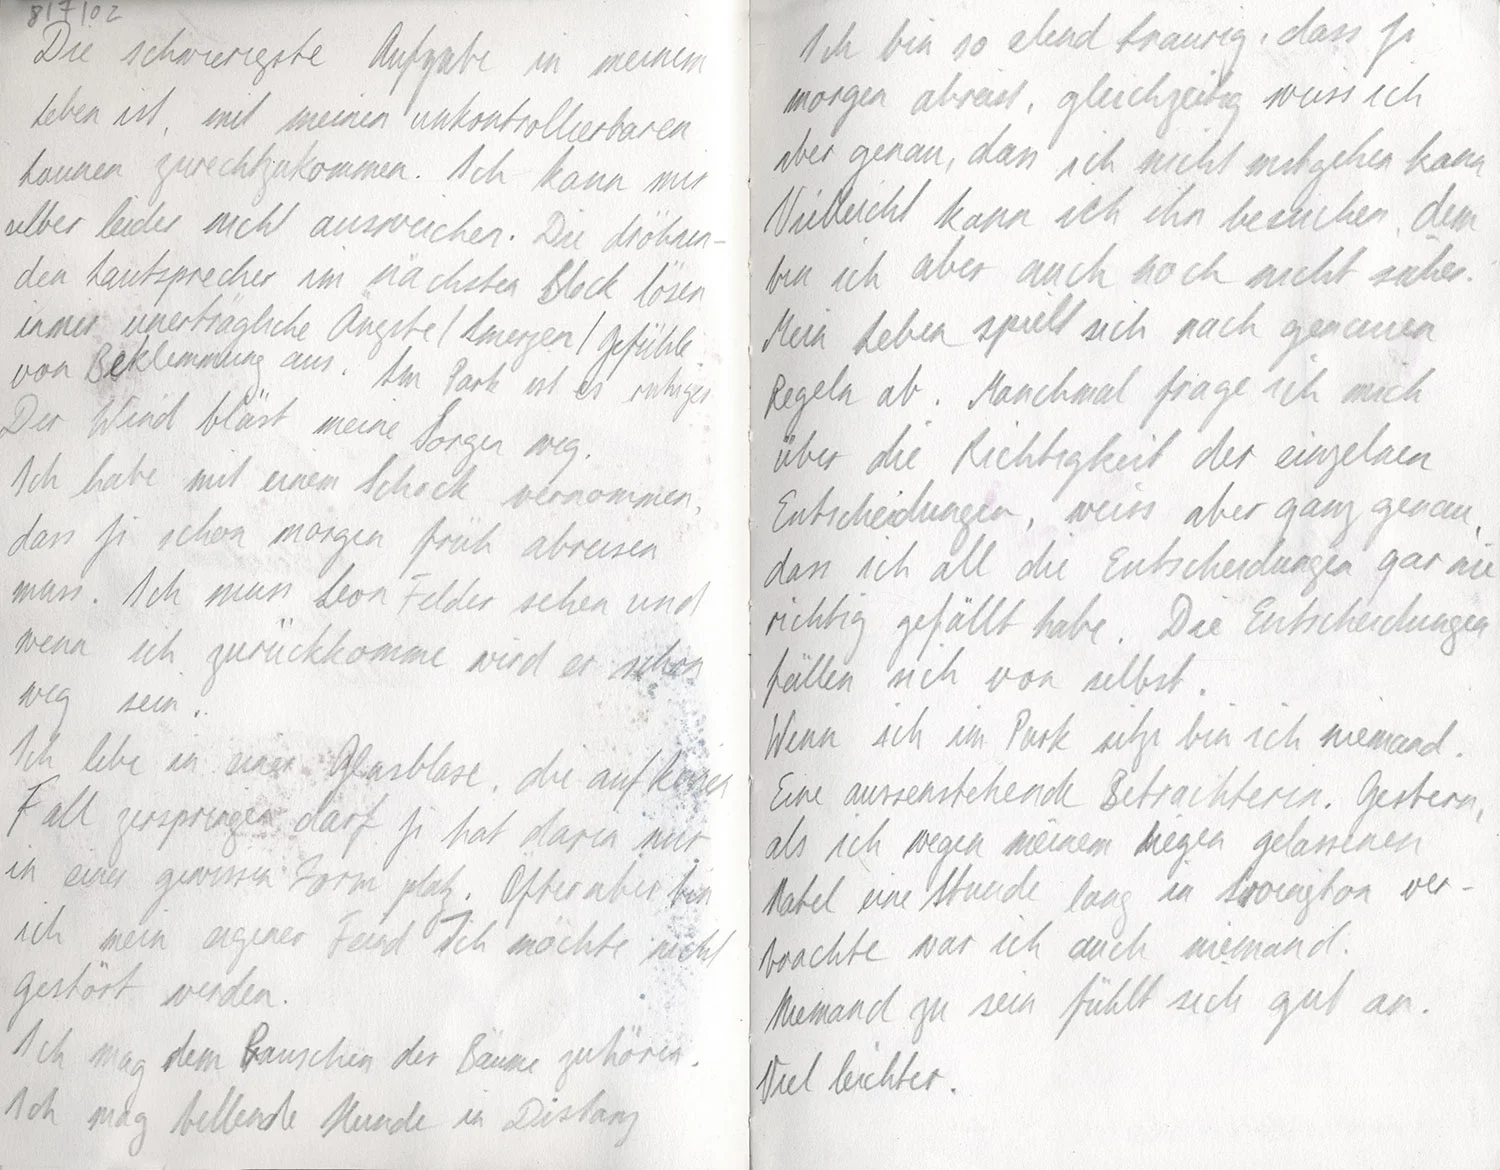 8/7/02
Die schwierigste Aufgabe in meinem
Leben ist, mit meinen unkontrollierbaren
Launen zurechtzukommen. Ich kann mir
selber leider nicht ausweichen. Die dröhnen-
den Lautsprecher im nächsten Block lösen
immer unerträgliche Ängste / Smerzen / Gefühle
von Beklemmung aus. Im Park ist es ruhiger
Der Wind bläst meine Sorgen weg.
Ich habe mit einem Schock vernommen,
dass Ji schon morgen früh abreisen
muss. Ich muss Leon Felder sehen und
wenn ich zurückkomme wird er schon
weg sein.
Ich lebe in einer Glasblase, die auf keinen
Fall zerspringen darf Ji hat darin nur
in einer gewissen Form platz. Öfter aber bin
ich mein eigener Feind Ich möchte nicht
gestört werden.
Ich mag dem Rauschen der Bäume zuhören.
Ich mag bellende Hunde in Distanz
Ich bin so elend traurig, dass Ji
morgen abreist, gleichzeitig weiss ich
aber genau, dass ich nicht mitgehen kann
Vielleicht kann ich ihn besuchen, dem
bin ich aber auch noch nicht sicher.
Mein Leben spielt sich nach genauen
Regeln ab. Manchmal frage ich mich
über die Richtigkeit der einzelnen
Entscheidungen, weiss aber ganz genau,
dass ich all die Entscheidungen gar nie
richtig gefällt habe. Die Entscheidungen
fällen sich von selbst.
Wenn ich im Park sitze bin ich niemand.
Eine aussenstehende Betrachterin. Gestern,
als ich wegen meinem liegen gelassenen
Natel eine Stunde lang in ver-
brachte war ich auch niemand.
Niemand zu sein fühlt sich gut an.
Viel leichter.